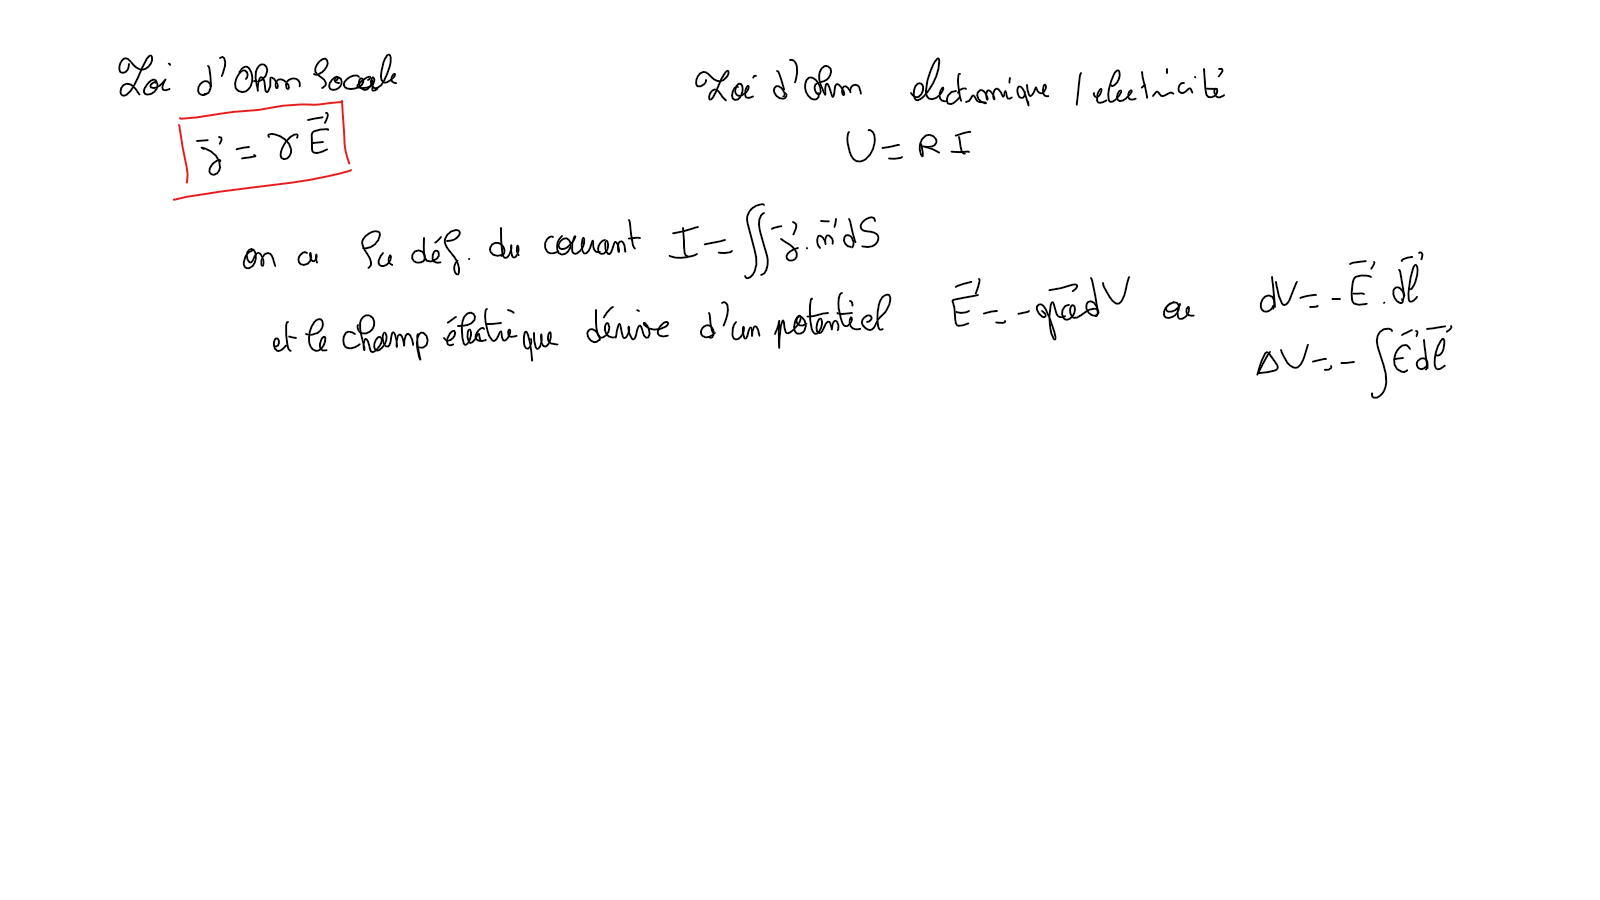 Loi d'Ohm locale
Loi d'Ohm electronique / electricité
j⃗ = γ E⃗
U = R I
on a la déf. du courant I = ∬ j⃗ . n⃗ dS
et le champ électrique dérive d'un potentiel E⃗ = - grad⃗ V ou dV = - E⃗ . dl⃗
ΔV = - ∫ E⃗ dl⃗